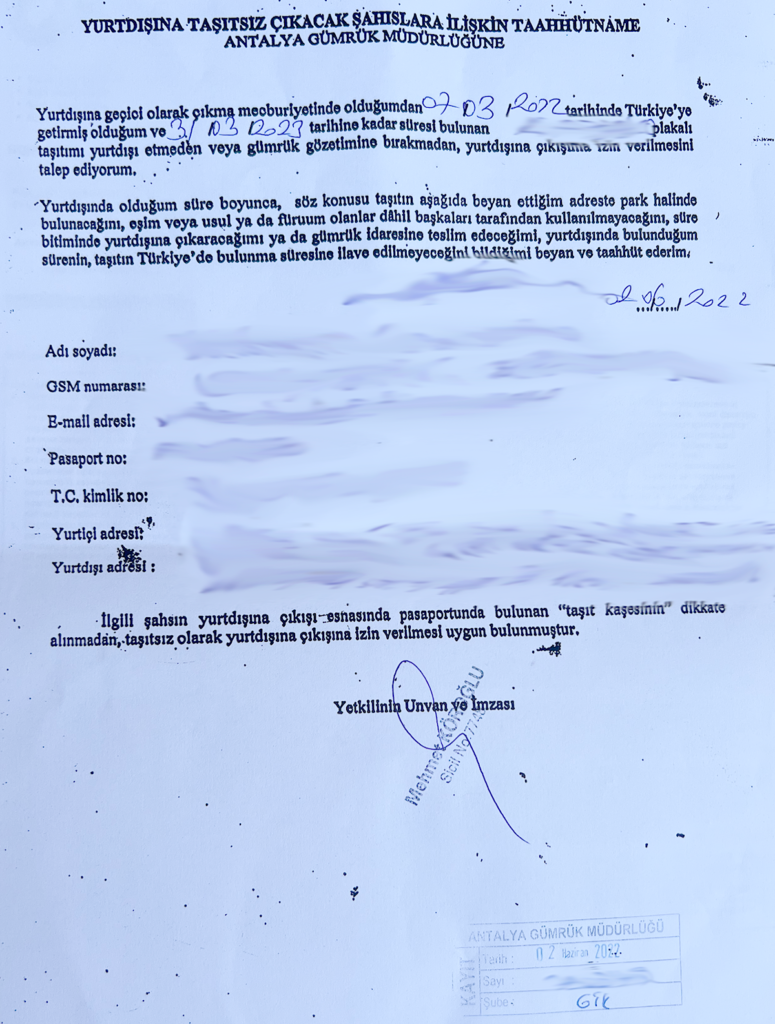 YURTDIŞINA TAŞITSIZ ÇIKACAK ŞAHISLARA İLİŞKİN TAAHHÜTNAME
ANTALYA GÜMRÜK MÜDÜRLÜĞÜNE
Yurtdışına geçici olarak çıkma mecburiyetinde olduğumdan 07 03 2022 tarihinde Türkiye'ye
getirmiş olduğum ve 3/ 03 2023 tarihine kadar süresi bulunan plakalı
taşıtımı yurtdışı etmeden veya gümrük gözetimine bırakmadan, yurtdışına çıkışıma izin verilmesini
talep ediyorum.
Yurtdışında olduğum süre boyunca, söz konusu taşıtın aşağıda beyan ettiğim adreste park halinde
bulunacağını, eşim veya usul ya da füruum olanlar dâhil başkaları tarafından kullanılmayacağını, süre
bitiminde yurtdışına çıkaracağımı ya da gümrük idaresine teslim edeceğimi, yurtdışında bulunduğum
sürenin, taşıtın Türkiye'de bulunma süresine ilave edilmeyeceğini bildiğimi beyan ve taahhüt ederim.
02.06./2022
Adı soyadı:
GSM numarası:
E-mail adresi:
Pasaport no:
T.C. kimlik no:
Yurtiçi adresi:
Yurtdışı adresi :
İlgili şahsın yurtdışına çıkışı esnasında pasaportunda bulunan "taşıt kaşesinin" dikkate
alınmadan, taşıtsız olarak yurtdışına çıkışına izin verilmesi uygun bulunmuştur.
Yetkilinin Unvan ve İmzası
Mehmet KÖROĞLU
Sicil No:
ANTALYA GÜMRÜK MÜDÜRLÜĞÜ
KAYIT
Tarih : 02 Haziran 2022
Sayı :
Şube :